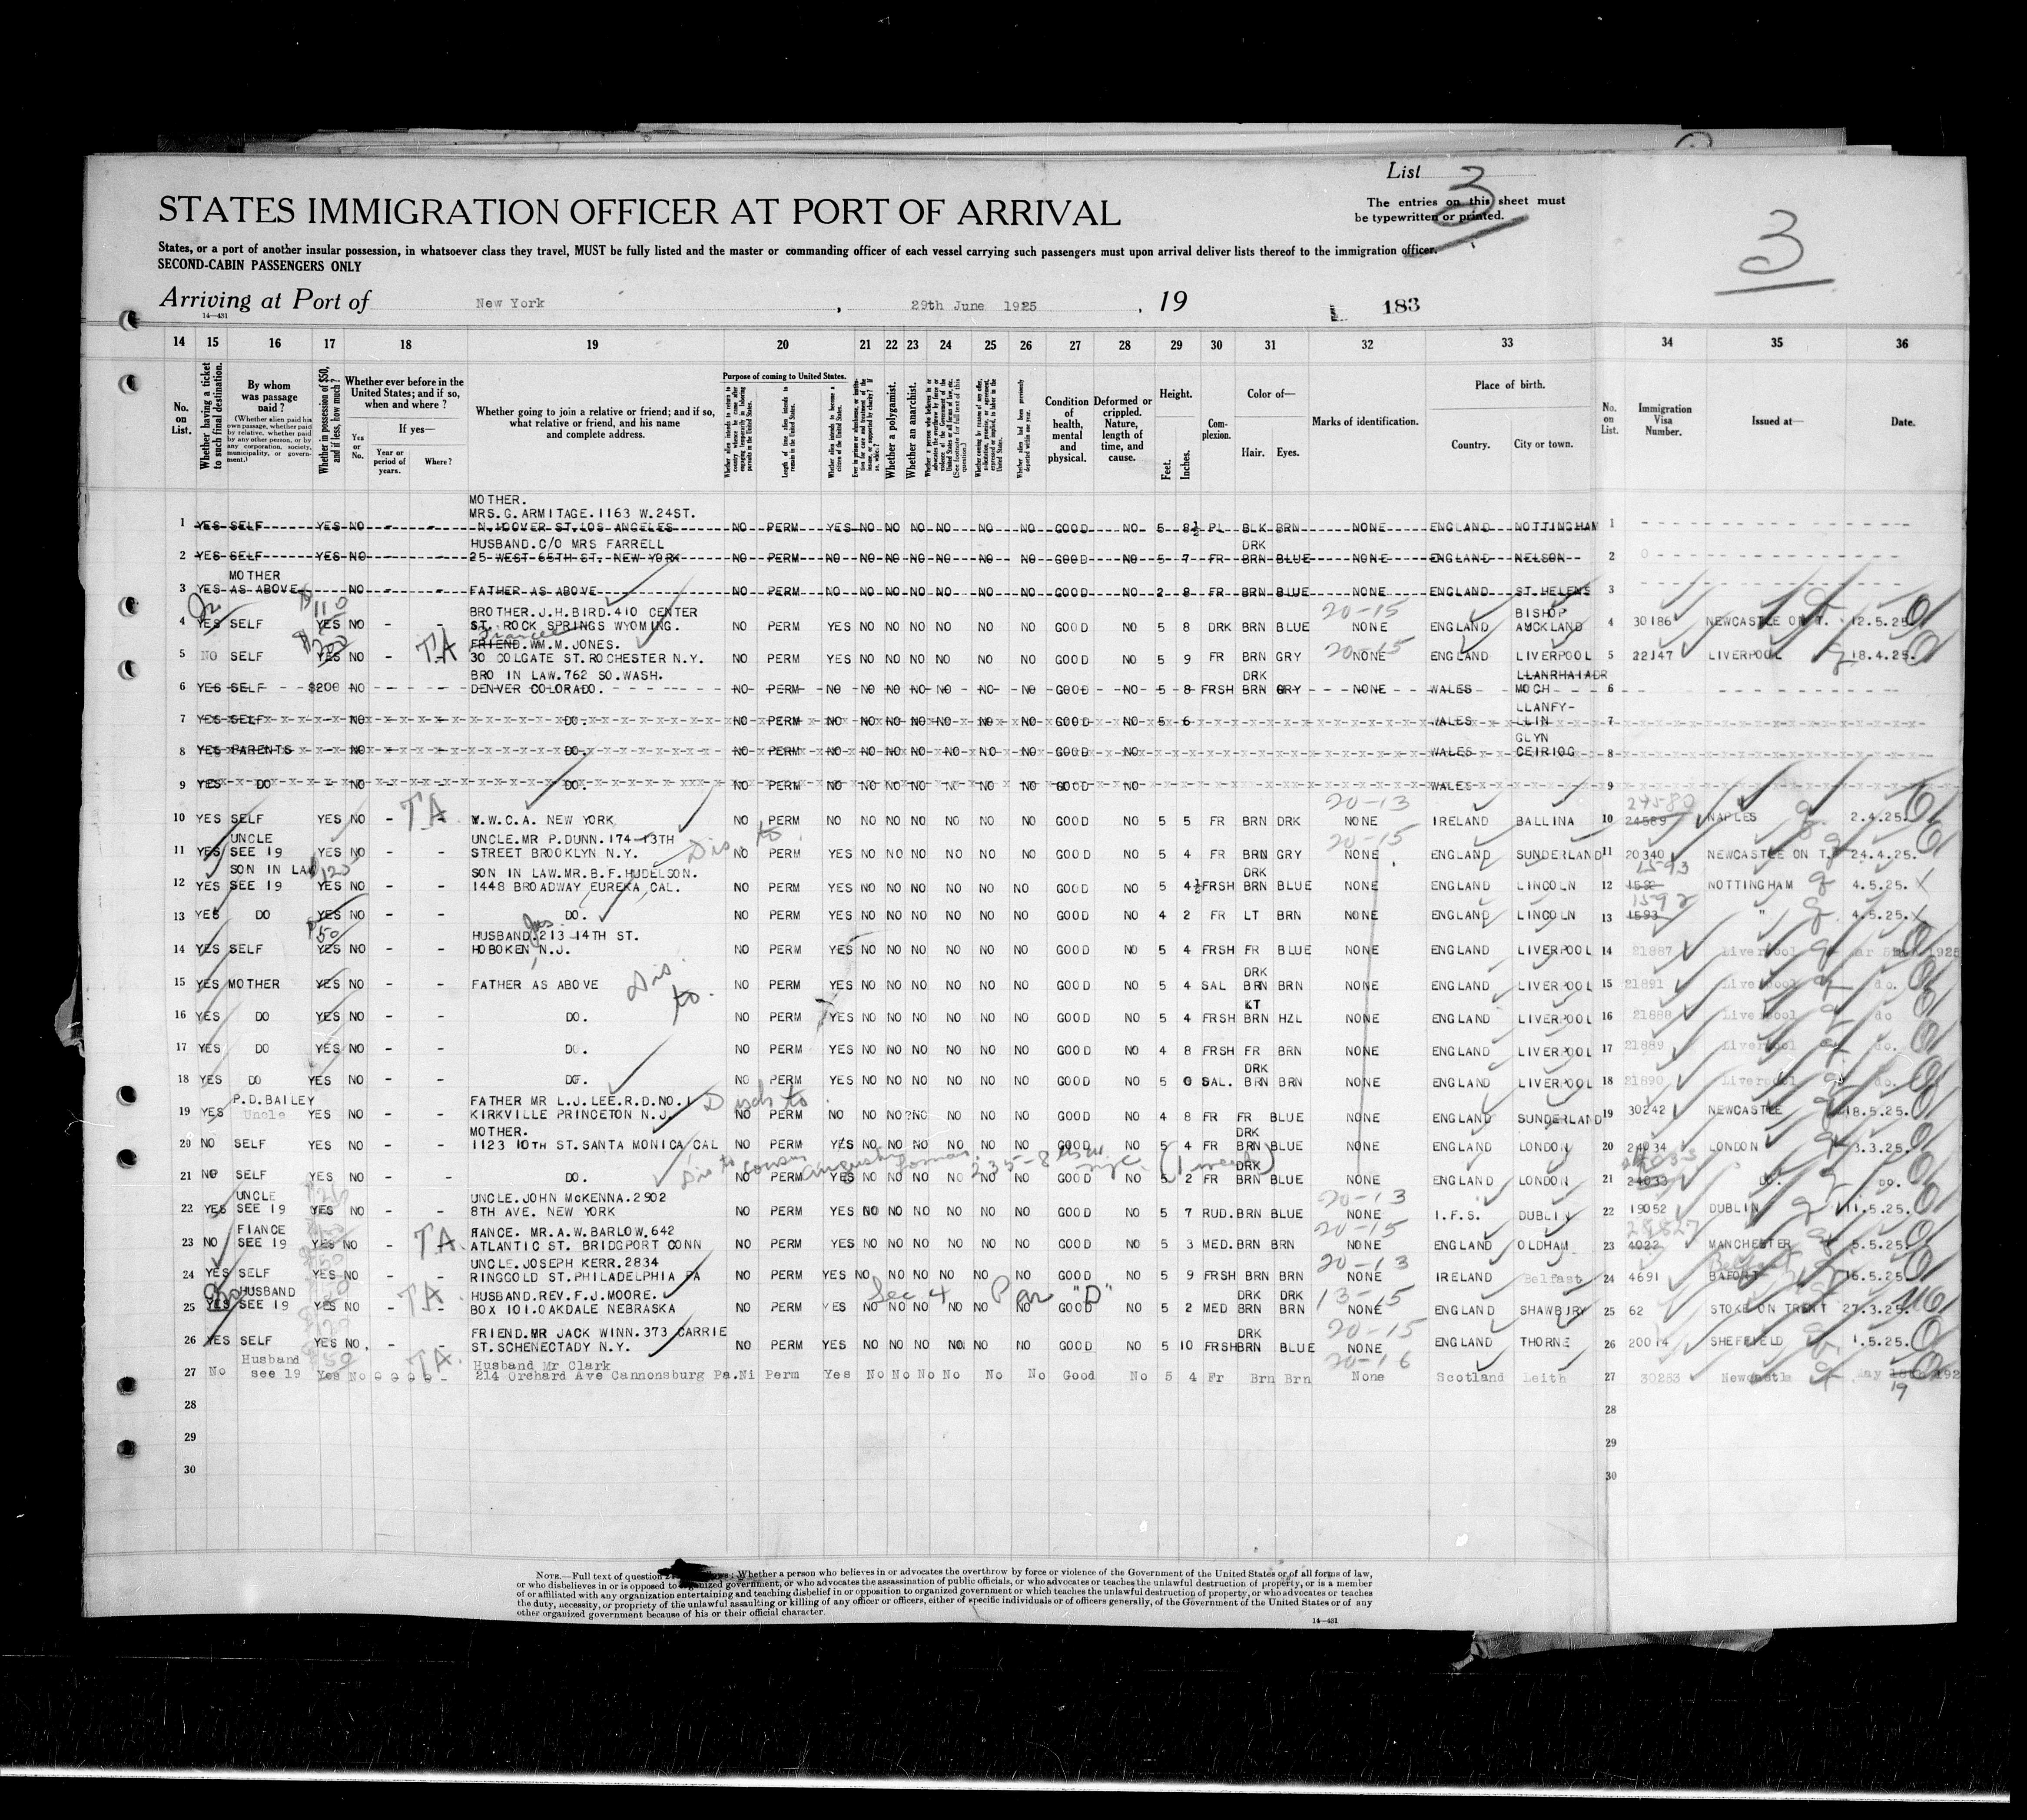 List 3
The entries on this sheet must
be typewritten or printed.
3
STATES IMMIGRATION OFFICER AT PORT OF ARRIVAL
States, or a port of another insular possession, in whatsoever class they travel, MUST be fully listed and the master or commanding officer of each vessel carrying such passengers must upon arrival deliver lists thereof to the immigration officer.
SECOND-CABIN PASSENGERS ONLY
Arriving at Port of New York, 29th June 1925, 19
14—431
183
14 15 16 17 18 19 20 21 22 23 24 25 26 27 28 29 30 31 32 33 34 35 36
No. on List.
Whether having a ticket to such final destination.
By whom was passage paid?
(Whether alien paid his own passage, whether paid by relative, whether paid by any other person, or by any corporation, society, municipality, or government.)
Whether in possession of $50, and if less, how much?
Whether ever before in the United States; and if so, when and where?
If yes—
Yes or No.
Year or period of years.
Where?
Whether going to join a relative or friend; and if so, what relative or friend, and his name and complete address.
Purpose of coming to United States.
Length of time alien intends to remain in the United States.
Whether alien intends to become a citizen of the United States.
Whether a polygamist.
Whether an anarchist.
Condition of health, mental and physical.
Deformed or crippled. Nature, length of time, and cause.
Height.
Feet. Inches.
Complexion.
Color of—
Hair. Eyes.
Marks of identification.
Place of birth.
Country. City or town.
No. on List.
Immigration Visa Number.
Issued at—
Date.
MOTHER.
MRS. G. ARMITAGE. 1163 W. 24ST.
1 YES SELF YES NO - - N. HOOVER ST. LOS ANGELES NO PERM YES NO NO NO NO NO NO GOOD NO 5 8½ PL BLK BRN NONE ENGLAND NOTTINGHAM 1
HUSBAND. C/O MRS FARRELL DRK
2 YES SELF YES NO - - 25 WEST 65TH ST. NEW YORK NO PERM NO NO NO NO NO NO NO GOOD NO 5 7 FR BRN BLUE NONE ENGLAND NELSON 2
MOTHER
3 YES AS ABOVE NO - - FATHER AS ABOVE NO PERM NO NO NO NO NO NO NO GOOD NO 2 8 FR BRN BLUE NONE ENGLAND ST. HELENS 3
$110 BROTHER. J.H. BIRD. 410 CENTER 20-15 BISHOP
4 YES SELF YES NO - - ST. ROCK SPRINGS WYOMING. NO PERM YES NO NO NO NO NO NO GOOD NO 5 8 DRK BRN BLUE NONE ENGLAND AUCKLAND 4 30186 NEWCASTLE ON T. 12.5.25
FRIEND. WM. M. JONES. 20-15
5 NO SELF YES NO - TA 30 COLGATE ST. ROCHESTER N.Y. NO PERM YES NO NO NO NO NO NO GOOD NO 5 9 FR BRN GRY NONE ENGLAND LIVERPOOL 5 22147 LIVERPOOL 18.4.25.
BRO IN LAW. 762 SO. WASH. DRK LLANRHAIADR
6 YES SELF $200 NO - - DENVER COLORADO. NO PERM NO NO NO NO NO NO NO GOOD NO 5 8 FRSH BRN GRY NONE WALES MOCH 6
LLANFY-
7 YES SELF NO DO. NO PERM NO NO NO NO NO NO NO GOOD NO 5 6 WALES LLIN 7
GLYN
8 YES PARENTS NO DO. NO PERM NO NO NO NO NO NO NO GOOD NO WALES CEIRIOG 8
9 YES DO NO DO. NO PERM NO NO NO NO NO NO NO GOOD NO WALES 9
20-13 24580
10 YES SELF YES NO - TA Y.W.C.A. NEW YORK NO PERM NO NO NO NO NO NO NO GOOD NO 5 5 FR BRN DRK NONE IRELAND BALLINA 10 24589 NAPLES 2.4.25.
UNCLE UNCLE. MR P. DUNN. 174-13TH Dis. to. 20-15
11 YES SEE 19 YES NO - - STREET BROOKLYN N.Y. NO PERM YES NO NO NO NO NO NO GOOD NO 5 4 FR BRN GRY NONE ENGLAND SUNDERLAND 11 20340 NEWCASTLE ON T. 24.4.25.
SON IN LAW $120 SON IN LAW. MR. B. F. HUDELSON. DRK 1593
12 YES SEE 19 YES NO - - 1448 BROADWAY EUREKA, CAL. NO PERM YES NO NO NO NO NO NO GOOD NO 5 4½ FRSH BRN BLUE NONE ENGLAND LINCOLN 12 NOTTINGHAM 4.5.25.
1592
13 YES DO YES NO - - DO. NO PERM YES NO NO NO NO NO NO GOOD NO 4 2 FR LT BRN NONE ENGLAND LINCOLN 13 1593 " 4.5.25.
$50 HUSBAND. 213 14TH ST.
14 YES SELF YES NO - - HOBOKEN N.J. NO PERM YES NO NO NO NO NO NO GOOD NO 5 4 FRSH FR BLUE NONE ENGLAND LIVERPOOL 14 21887 Liverpool 1925
Dis. to. DRK
15 YES MOTHER YES NO - - FATHER AS ABOVE NO PERM YES NO NO NO NO NO NO GOOD NO 5 4 SAL BRN BRN NONE ENGLAND LIVERPOOL 15 21891 Liverpool do.
16 YES DO YES NO - - DO. NO PERM YES NO NO NO NO NO NO GOOD NO 5 4 FRSH BRN HZL NONE ENGLAND LIVERPOOL 16 21888 Liverpool do
17 YES DO YES NO - - DO. NO PERM YES NO NO NO NO NO NO GOOD NO 4 8 FRSH FR BRN NONE ENGLAND LIVERPOOL 17 21889 Liverpool do.
DRK
18 YES DO YES NO - - DO. NO PERM YES NO NO NO NO NO NO GOOD NO 5 0 SAL. BRN BRN NONE ENGLAND LIVERPOOL 18 21890 Liverpool do.
P.D. BAILEY FATHER MR L.J. LEE. R.D. NO. 1 Disch to
19 YES Uncle YES NO - - KIRKVILLE PRINCETON N.J. NO PERM NO NO NO ?NO NO NO NO GOOD NO 4 8 FR FR BLUE NONE ENGLAND SUNDERLAND 19 30242 NEWCASTLE 18.5.25.
MOTHER. DRK
20 NO SELF YES NO - - 1123 10TH ST. SANTA MONICA CAL NO PERM YES NO NO NO NO NO NO GOOD NO 5 4 FR BRN BLUE NONE ENGLAND LONDON 20 24034 LONDON 3.3.25.
Dis to cousin 235-8 (1 week) DRK
21 NO SELF YES NO - - DO. NO PERM YES NO NO NO NO NO NO GOOD NO 5 2 FR BRN BLUE NONE ENGLAND LONDON 21 24033 DO. DO.
UNCLE UNCLE. JOHN McKENNA. 2902 20-13
22 YES SEE 19 YES NO - - 8TH AVE. NEW YORK NO PERM YES NO NO NO NO NO NO GOOD NO 5 7 RUD. BRN BLUE NONE I.F.S. DUBLIN 22 19052 DUBLIN 11.5.25.
FIANCE FIANCE. MR. A.W. BARLOW. 642 20-15 28827
23 NO SEE 19 YES NO - TA. ATLANTIC ST. BRIDGPORT CONN NO PERM YES NO NO NO NO NO NO GOOD NO 5 3 MED. BRN BRN NONE ENGLAND OLDHAM 23 4022 MANCHESTER 5.5.25.
UNCLE. JOSEPH KERR. 2834 20-13 Belfast
24 YES SELF YES NO - - RINGGOLD ST. PHILADELPHIA PA NO PERM YES NO NO NO NO NO NO GOOD NO 5 9 FRSH BRN BRN NONE IRELAND Belfast 24 4691 16.5.25.
HUSBAND HUSBAND. REV. F.J. MOORE. Sec 4 Par "D" DRK DRK 13-15
25 YES SEE 19 YES NO - TA. BOX 101. OAKDALE NEBRASKA NO PERM YES NO NO NO NO NO NO GOOD NO 5 2 MED BRN BRN NONE ENGLAND SHAWBURY 25 62 STOKE ON TRENT 27.3.25.
FRIEND. MR JACK WINN. 373 CARRIE DRK 20-15
26 YES SELF YES NO. - - ST. SCHENECTADY N.Y. NO PERM YES NO NO NO NO NO NO GOOD NO 5 10 FRSH BRN BLUE NONE ENGLAND THORNE 26 20014 SHEFFIELD 1.5.25.
Husband TA. Husband Mr Clark 20-16
27 No see 19 Yes No 214 Orchard Ave Cannonsburg Pa. Ni Perm Yes No No No No No No Good No 5 4 Fr Brn Brn None Scotland Leith 27 30253 Newcastle May 18th 192
19
28 28
29 29
30 30
NOTE.—Full text of question : Whether a person who believes in or advocates the overthrow by force or violence of the Government of the United States or of all forms of law,
or who disbelieves in or is opposed to organized government, or who advocates the assassination of public officials, or who advocates or teaches the unlawful destruction of property, or is a member
of or affiliated with any organization entertaining and teaching disbelief in or opposition to organized government or which teaches the unlawful destruction of property, or who advocates or teaches
the duty, necessity, or propriety of the unlawful assaulting or killing of any officer or officers, either of specific individuals or of officers generally, of the Government of the United States or of any
other organized government because of his or their official character.
14—431